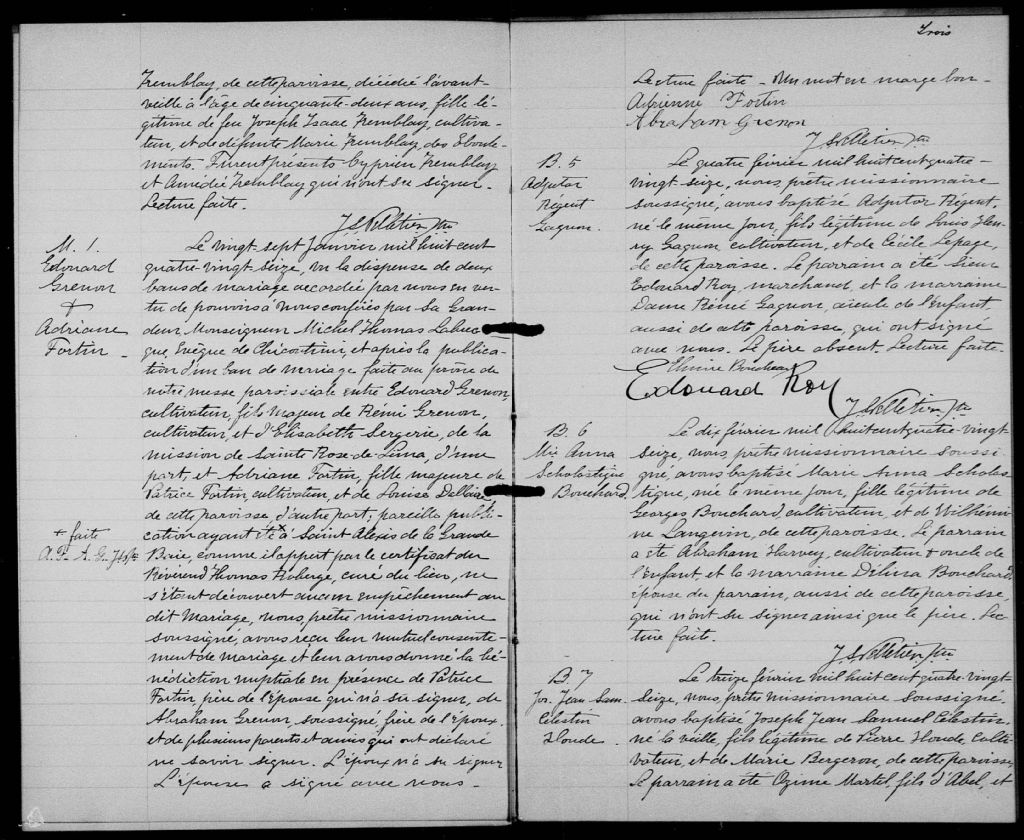 Tremblay, de cette paroisse, décédé l'avant-
veille à l'âge de cinquante-deux ans, fille lé-
gitime de feu Joseph Isaac Tremblay, cultiva-
teur, et de défunte Marie Tremblay, des Eboule-
ments. Furent présents Cyprien Tremblay
et Amédée Tremblay qui n'ont su signer.
Lecture faite.
J. S. Pelletier Ptre
M. 1.
Edouard
Grenon
+
Adriane
Fortin
Le vingt-sept Janvier mil huit cent
quatre-vingt seize, vu la dispense de deux
bans de mariage accordée par nous en ver-
tu de pouvoirs à nous confiés par Sa Gran-
deur Monseigneur Michel Thomas Labrec-
que, Evêque de Chicoutimi, et après la publica-
tion d'un ban de mariage faite au prône de
notre messe paroissiale entre Edouard Grenon,
cultivateur, fils majeur de Rémi Grenon,
cultivateur, et d'Elisabeth Sergerie, de la
mission de Sainte Rose-de-Lima, d'une
part, et Adriane Fortin, fille majeure de
Patrice Fortin, cultivateur, et de Louise Dallaire,
de cette paroisse d'autre part; pareille publi-
cation ayant été + à Saint Alexis de la Grande
+ faite
A. P. A. G. JSPtre
Baie, comme il appert par le certificat du
Révérend Thomas Roberge, curé du lieu, ne
s'étant découvert aucun empêchement au
dit Mariage, nous, prêtre missionnaire
soussigné, avons reçu leur mutuel consente-
ment de mariage et leur avons donné la bé-
nédiction nuptiale en présence de Patrice
Fortin, père de l'épouse qui n'a su signer, de
Abraham Grenon, soussigné, frère de l'époux,
et de plusieurs parents et amis qui ont déclaré
ne savoir signer. L'époux n'a su signer
L'épouse a signé avec nous.
Trois
Lecture faite - Un mot en marge bon-
Adrienne Fortin
Abraham Grenon
J. S. Pelletier Ptre
B. 5
Adjutor
Régent
Gagnon.
Le quatre février mil huit cent quatre-
vingt-seize, nous, prêtre missionnaire
soussigné, avons baptisé Adjutor Régent,
né le même jour, fils légitime de Louis Hen-
ry Gagnon cultivateur, et de Cécile Lepage,
de cette paroisse. Le parrain a été Sieur
Edouard Roy, marchand, et la marraine
Dame Rémé Gagnon, aïeule de l'enfant,
aussi de cette paroisse, qui ont signé
avec nous. Le père absent. Lecture faite.
Elmire Bouchard
Edouard Roy
J. S. Pelletier Ptre
B. 6
Mie Anna
Scholastique
Bouchard.
Le dix février mil huit cent quatre-vingt
seize, nous, prêtre missionnaire soussi
gné, avons baptisé Marie Anna Scholas
tique, née le même jour, fille légitime de
Georges Bouchard, cultivateur, et de Wilhémi
ne Langevin, de cette paroisse. Le parrain
a été Abraham Harvey, cultivateur & oncle de
l'enfant, et la marraine Délina Bouchard,
épouse du parrain, aussi de cette paroisse,
qui n'ont su signer ainsi que le père. Lec
ture faite.
J. S. Pelletier Ptre
B. 7
Jos. Jean Sam.
Célestin
Houde.
Le treize février mil huit cent quatre-vingt
seize, nous, prêtre missionnaire soussigné
avons baptisé Joseph Jean Samuel Célestin,
né la veille, fils légitime de Pierre Houde, culti-
vateur, et de Marie Bergeron, de cette paroisse,
Le parrain a été Ozime Martel, fils d'Abel, et